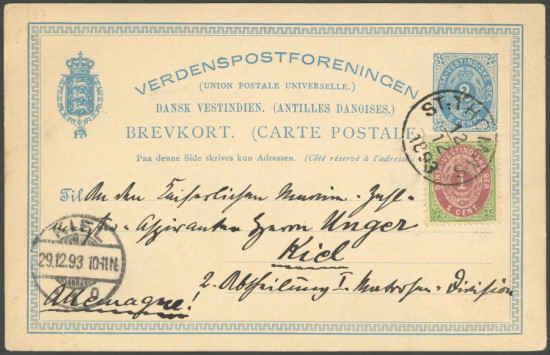 VERDENSPOSTFORENINGEN
(UNION POSTALE UNIVERSELLE.)
DANSK VESTINDIEN. (ANTILLES DANOISES.)
BREVKORT. (CARTE POSTALE
Paa denne Side skrives kun Adressen. (Côté réservé à l'adresse
ST. TH
12
12
1893
DANSK VESTINDISKE ØER
1 CENT
Til An den Kaiserlichen Marine-Zahl-
meister-Aspiranten Herrn Unger
Kiel
2. Abtheilung I. Matrosen-Division
Allemagne!
KIEL
29.12.93 10-11 N.